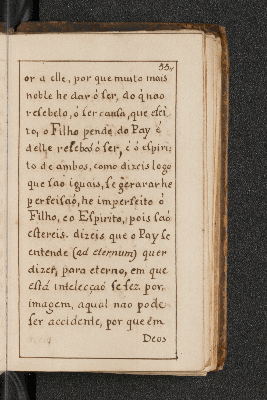 55,,
or a elle, por que muito mais
noble he dar ó ser, do q̃ nao
resebelo, ó ser causa, que efei
to, o Filho pende do Pay é
delle resebeo ó ser, é ó espiri;
to de ambos, como dizeis logo
que sao iguais, se gerarar he
perfeisaó, he imperfeito ó
Filho, e o Espirito, pois saó
estereis. dizeis que o Pay se
entende (ad eternum) quer
dizer, para eterno, em que
está intelecçaó se fez por
imagem, aqual nao pode
ser accidente, por que ém
Deos